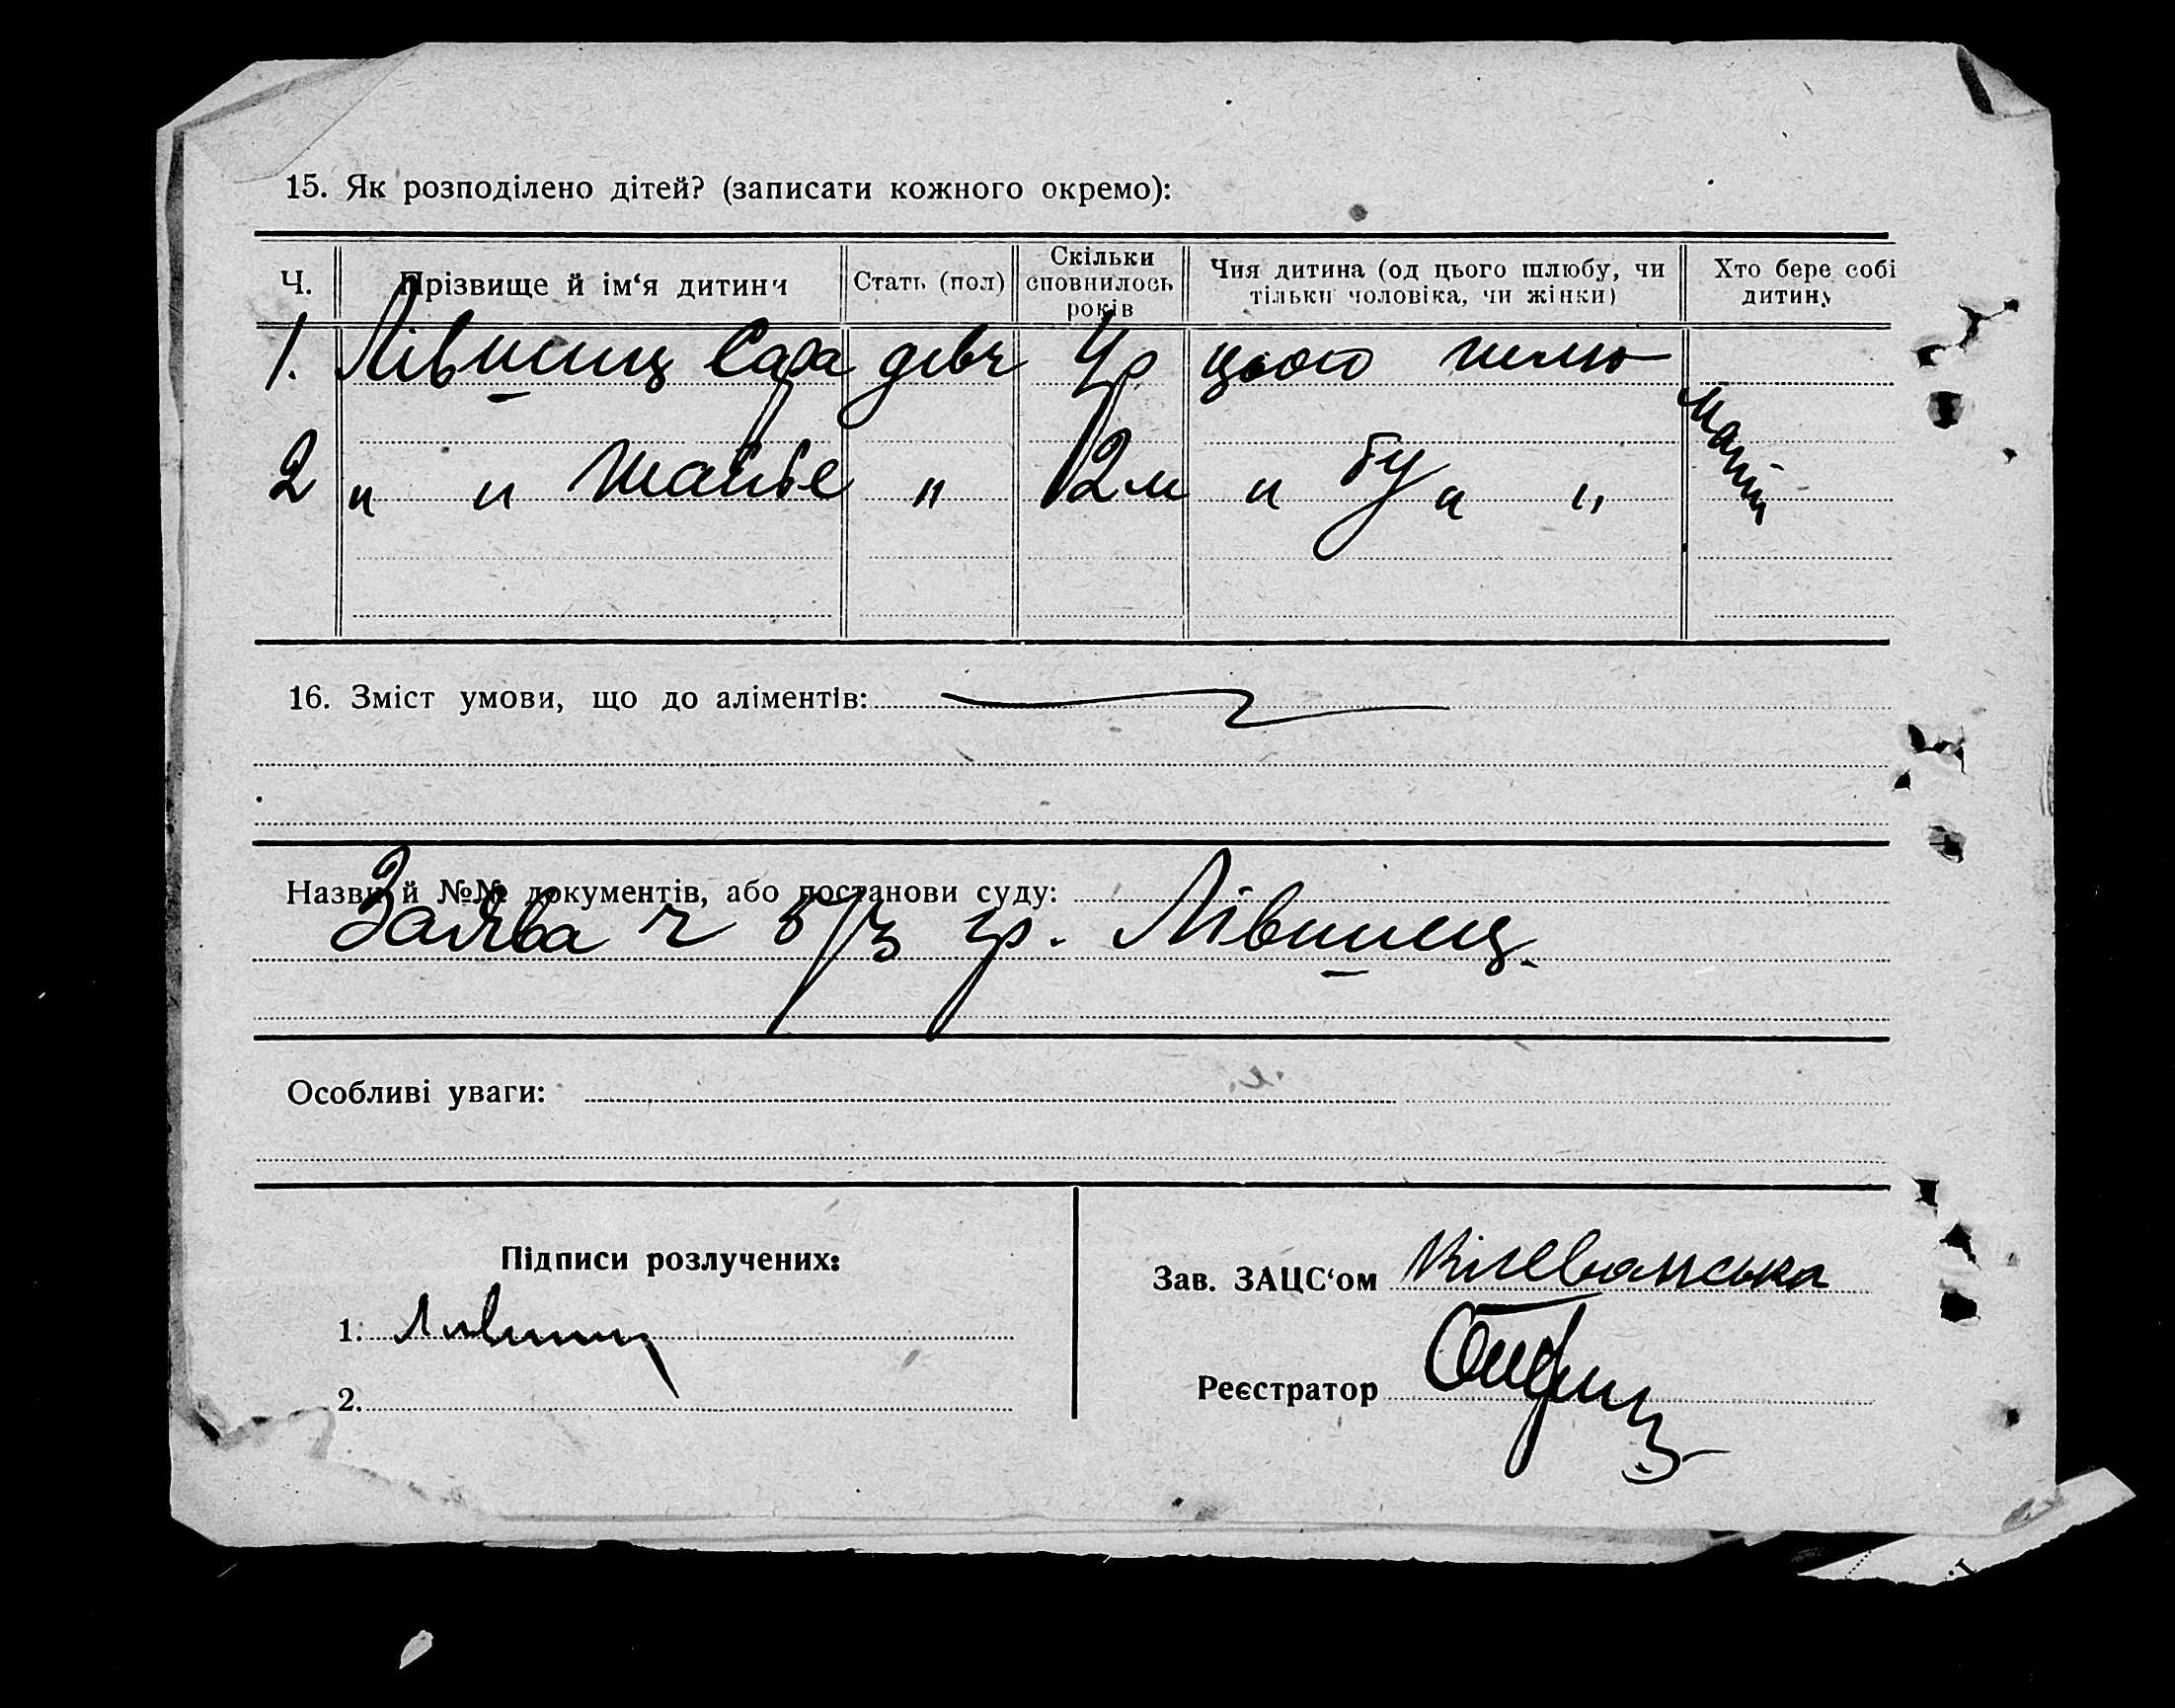 15. Як розподілено дітей? (записати кожного окремо):
Ч. Прізвище й ім‘я дитини Стать (пол) Скільки сповнилось років Чия дитина (од цього шлюбу, чи тільки чоловіка, чи жінки) Хто бере собі дитину
1. Лівшиц Сара дівч 4р цього шлю
матір
2 " " Шейве " 2 м " бу " "
16. Зміст умови, що до аліментів:
Назви й №№ документів, або постанови суду:
Заява ч 5/з гр. Лівшиц.
Особливі уваги:
Підписи розлучених:
1. Лившиц
2.
Зав. ЗАЦС‘ом
Реєстратор